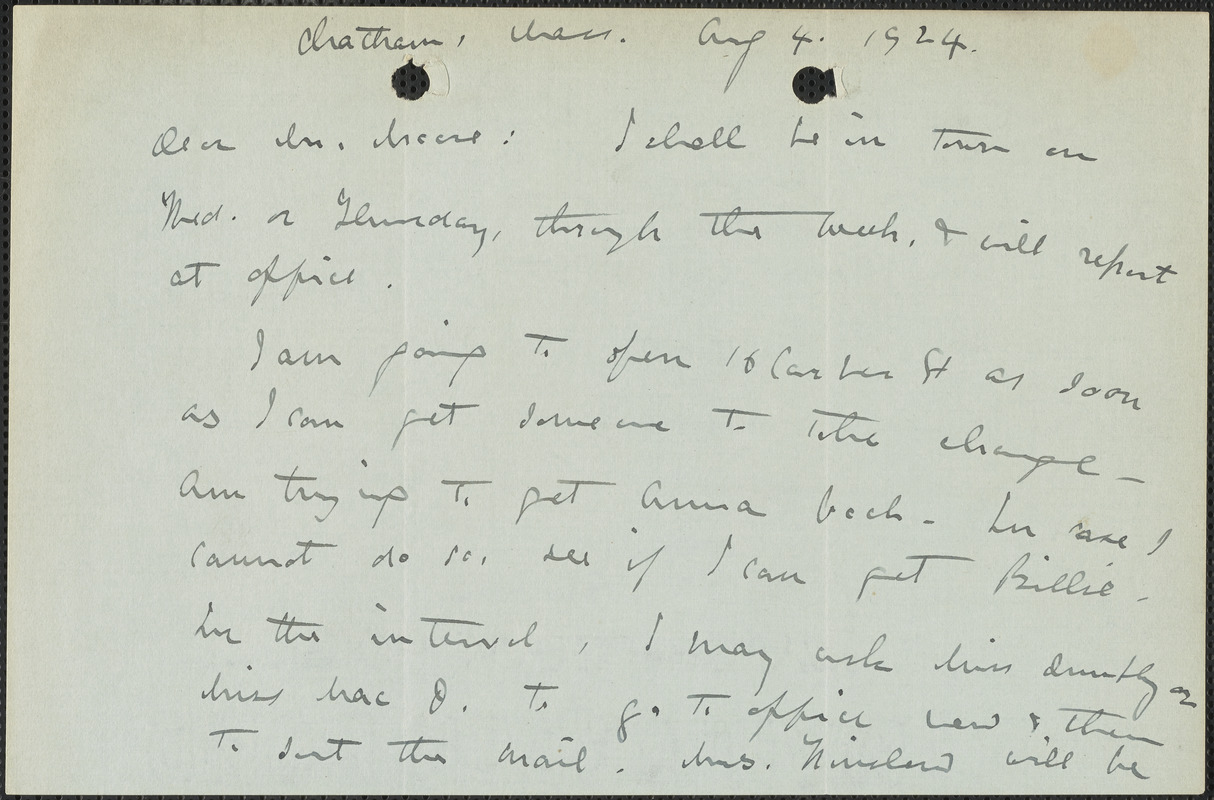 Chatham, Mass. Aug 4. 1924.
Dear Mr. Moore: I shall be in town on
Wed. or Thursday, through the week, & will report
at office.
I am going to open 16 Carver St as soon
as I can get some one to take charge —
Am trying to get Anna back - In case I
cannot do so, see if I can get Billie.
In the interval, I may ask Miss or
Miss Mac D. to go to office now & then
to sort the mail. Mrs. will be